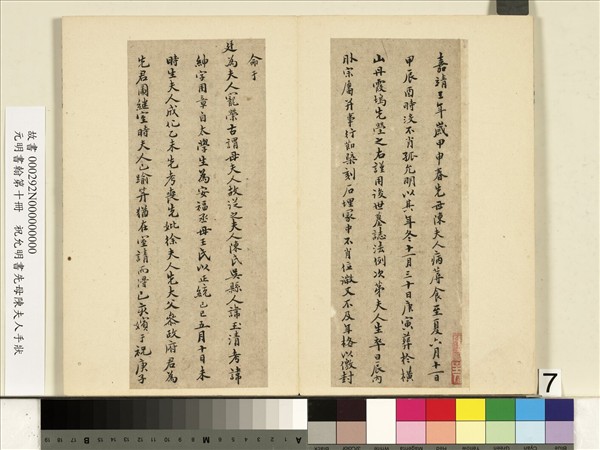 嘉靖三年歲甲申春先母陳夫人病篤食至夏六月十一日
甲辰酉時沒不肖孤允明以其年冬十一月三十日庚寅葬於橫
山丹霞塢先塋之右謹用後世墓誌法例次第夫人生卒日辰內
外宗屬并事行勒樂刻石埋冢中不肖位微又不及年格以徼封
命于
廷為夫人寵榮古謂母夫人故從之夫人陳氏吳縣人諱玉清考諱
紳字用章自太學生為安福丞母王氏以正統己巳五月十日未
時生夫人成化乙未先考喪先妣徐夫人先大父參政府君為
先君圖繼室時夫人踰笄猶在室請而得之爽嬪于祝庚子
故書 000292N000000000
元明書翰第十冊 祝允明書先母陳夫人手狀
7